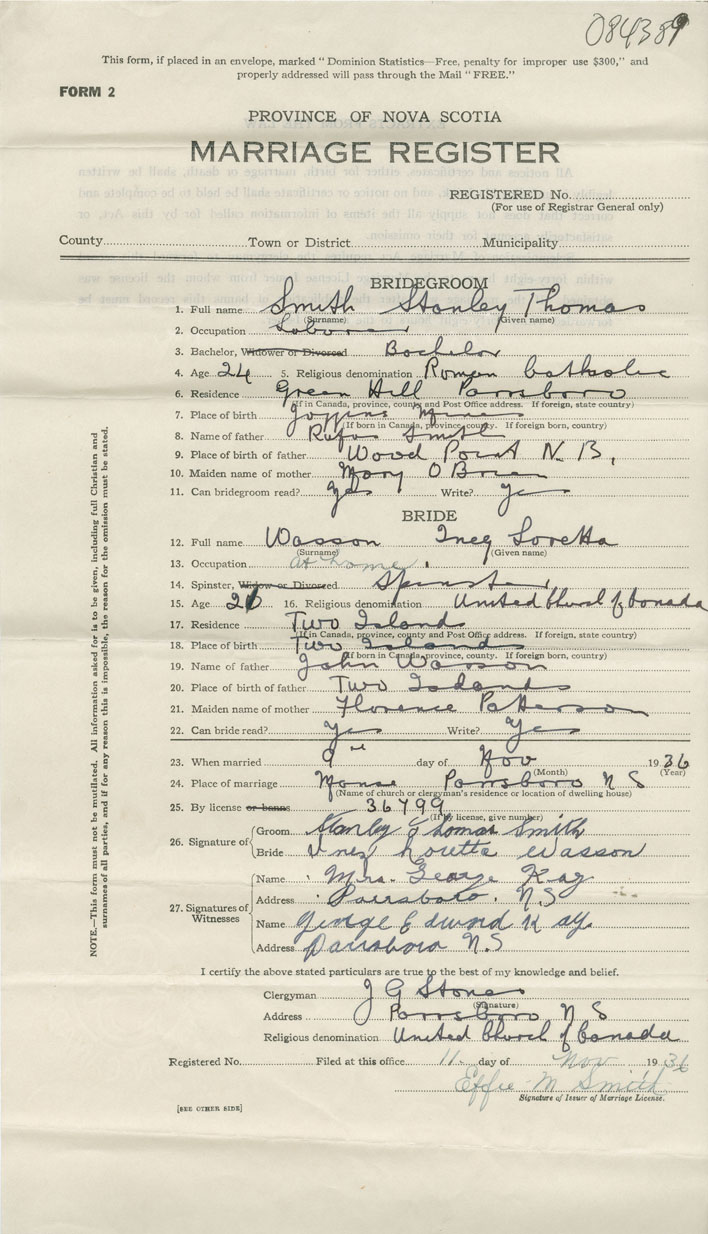 084389
This form, if placed in an envelope, marked "Dominion Statistics—Free, penalty for improper use $300," and
properly addressed will pass through the Mail "FREE."
FORM 2
PROVINCE OF NOVA SCOTIA
MARRIAGE REGISTER
REGISTERED No.
(For use of Registrar General only)
County Town or District Municipality
BRIDEGROOM
1. Full name Smith Stanley Thomas
(Surname) (Given name)
2. Occupation Labourer
3. Bachelor, Widower or Divorced Bachelor
4. Age 24 5. Religious denomination Roman Catholic
6. Residence Green Hill Parrsboro
(If in Canada, province, county and Post Office address. If foreign, state country)
7. Place of birth Joggins Mines
(If born in Canada, province, county. If foreign born, country)
8. Name of father Rufus Smith
9. Place of birth of father Wood Point N.B.,
10. Maiden name of mother Mary O'Brien
11. Can bridegroom read? Yes Write? Yes
BRIDE
12. Full name Wasson Inez Loretta
(Surname) (Given name)
13. Occupation at home
14. Spinster, Widow or Divorced Spinster
15. Age 16. Religious denomination United Church of Canada
17. Residence Two Islands
(If in Canada, province, county and Post Office address. If foreign, state country)
18. Place of birth Two Islands
(If born in Canada, province, county. If foreign born, country)
19. Name of father John Wasson
20. Place of birth of father Two Islands
21. Maiden name of mother Florence Patterson
22. Can bride read? Yes Write? Yes
23. When married 9 day of Nov 1936
(Month) (Year)
24. Place of marriage Manse Parrsboro N S
(Name of church or clergyman's residence or location of dwelling house)
25. By license or banns 36799
(If by license, give number)
26. Signature of
Groom Stanley Thomas Smith
Bride Inez Loretta Wasson
27. Signatures of Witnesses
Name Mrs. George Kay
Address Parrsboro. N.S
Name George Edward Kay.
Address Parrsboro N.S
I certify the above stated particulars are true to the best of my knowledge and belief.
Clergyman J G Stones
(Signature)
Address Parrsboro N S
Religious denomination United Church of Canada
Registered No. Filed at this office 11 day of Nov 1936
Effie M Smith
Signature of Issuer of Marriage License.
[SEE OTHER SIDE]
NOTE.—This form must not be mutilated. All information asked for is to be given, including full Christian and
surnames of all parties, and if for any reason this is impossible, the reason for the omission must be stated.